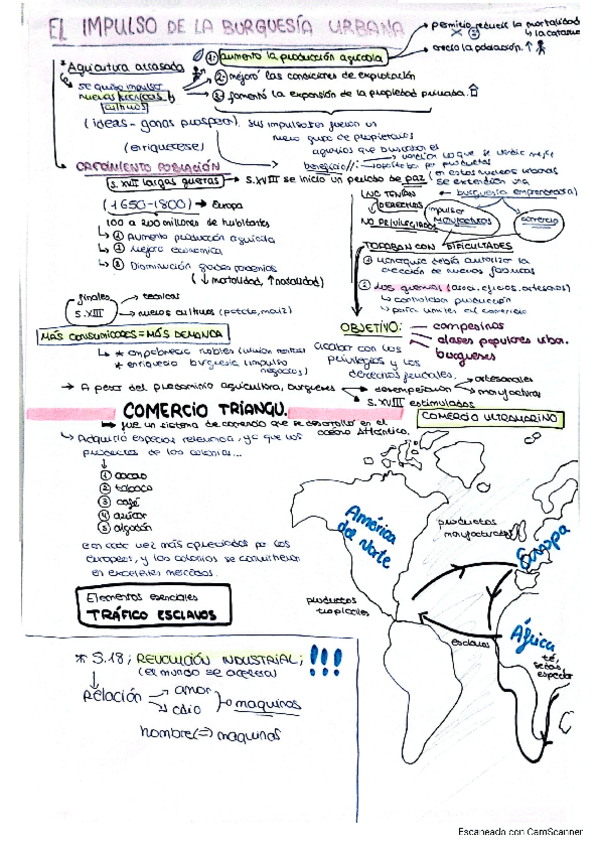 EL IMPULSO DE LA BURGUESÍA URBANA
* Agricultura atrasada
→ se quiso impulsar
nuevas técnicas y
cultivos
① aumentó la producción agrícola
→ permitió reducir la mortalidad
→ creció la población ↑
② mejoró las condiciones de explotación
③ fomentó la expansión de la propiedad privada
(ideas - ganas prosperar) sus impulsores fueron un
nuevo grupo de propietarios
agrarios que buscaban el
beneficio
(enriquecerse)
CRECIMIENTO POBLACIÓN
S. XVII largas guerras → S. XVIII se inicio un periodo de paz
(1650-1800) → Europa
100 a 200 millones de habitantes
① Aumento producción agrícola
② Mejora económica
③ Disminución grandes
(↓ mortalidad, ↑ natalidad)
finales
S. XIII
→ técnicas
→ nuevos cultivos (patata, maíz)
MÁS CONSUMIDORES = MÁS DEMANDA
→ * nobles
→ * enriqueció burguesía (impulso
negocios)
(en estos nuevos urbanas
se extendían una
burguesía emprendedora)
NO TENÍAN
DERECHOS
NO PRIVILEGIADOS
impulsar
MANUFACTURAS
comercio
TOPABAN CON DIFICULTADES
① Monarquía debía autorizar la
creación de nuevas fábricas
② Los gremios (asoci. oficios, artesanos)
→ controlaban producción
→ el comercio
OBJETIVO:
acabar con los
privilegios y los
derechos feudales.
→ campesinos
→ clases populares urba.
→ burgueses
→ A pesar del predominio agricultura, burgueses → desempeñaron → artesanales
→ manufacturas
→ S. XVIII estimulados
COMERCIO TRIANGU.
→ fue un sistema de comercio que se desarrolló en el
océano Atlántico.
→ Adquirió especial relevancia, ya que los
productos de las colonias...
① cacao
② tabaco
③ café
④ azúcar
⑤ algodón
eran cada vez más apreciados por los
europeos, y las colonias se convirtieron
en excelentes mercados.
Elementos esenciales
TRÁFICO ESCLAVOS
COMERCIO ULTRAMARINO
América
del Norte
productos
manufacturados
Europa
productos
tropicales
esclavos
África
té,
sedas,
* S.18; REVOLUCIÓN INDUSTRIAL; !!!
(el mundo se acelera)
Relación → amor
→ odio
máquinas
hombre (=) maquinas
Escaneado con CamScanner